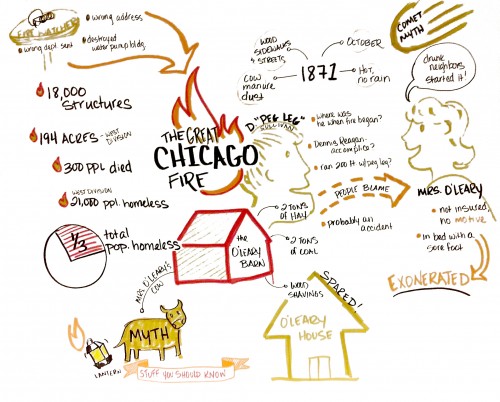 FIRE WATCHER
• wrong address
• destroyed
water pump bldg.
• wrong dept. sent
18,000
structures
194 ACRES - WEST
DIVISION
300 ppl died
WEST DIVISION
21,000 ppl. homeless
1/3
total
pop. homeless
THE GREAT
CHICAGO
FIRE
WOOD
SIDEWALKS
& STREETS
OCTOBER
1871
HOT,
no rain
COW
manure
dust
COMET
MYTH
drunk
neighbors
started it!
D. "PEG LEG"
SULLIVAN
• where was
he when fire began?
• Dennis Reagan-
accomplice?
• ran 200 ft w/peg leg?
PEOPLE BLAME
• probably an
accident
MRS. O'LEARY
• not insured,
no motive
• in bed with a
sore foot
EXONERATED
the
O'LEARY
BARN
2 TONS
OF HAY
2 TONS
OF COAL
WOOD
SHAVINGS
MRS. O'LEARY'S
COW
MYTH
LANTERN
STUFF YOU SHOULD KNOW
SPARED!
O'LEARY
HOUSE